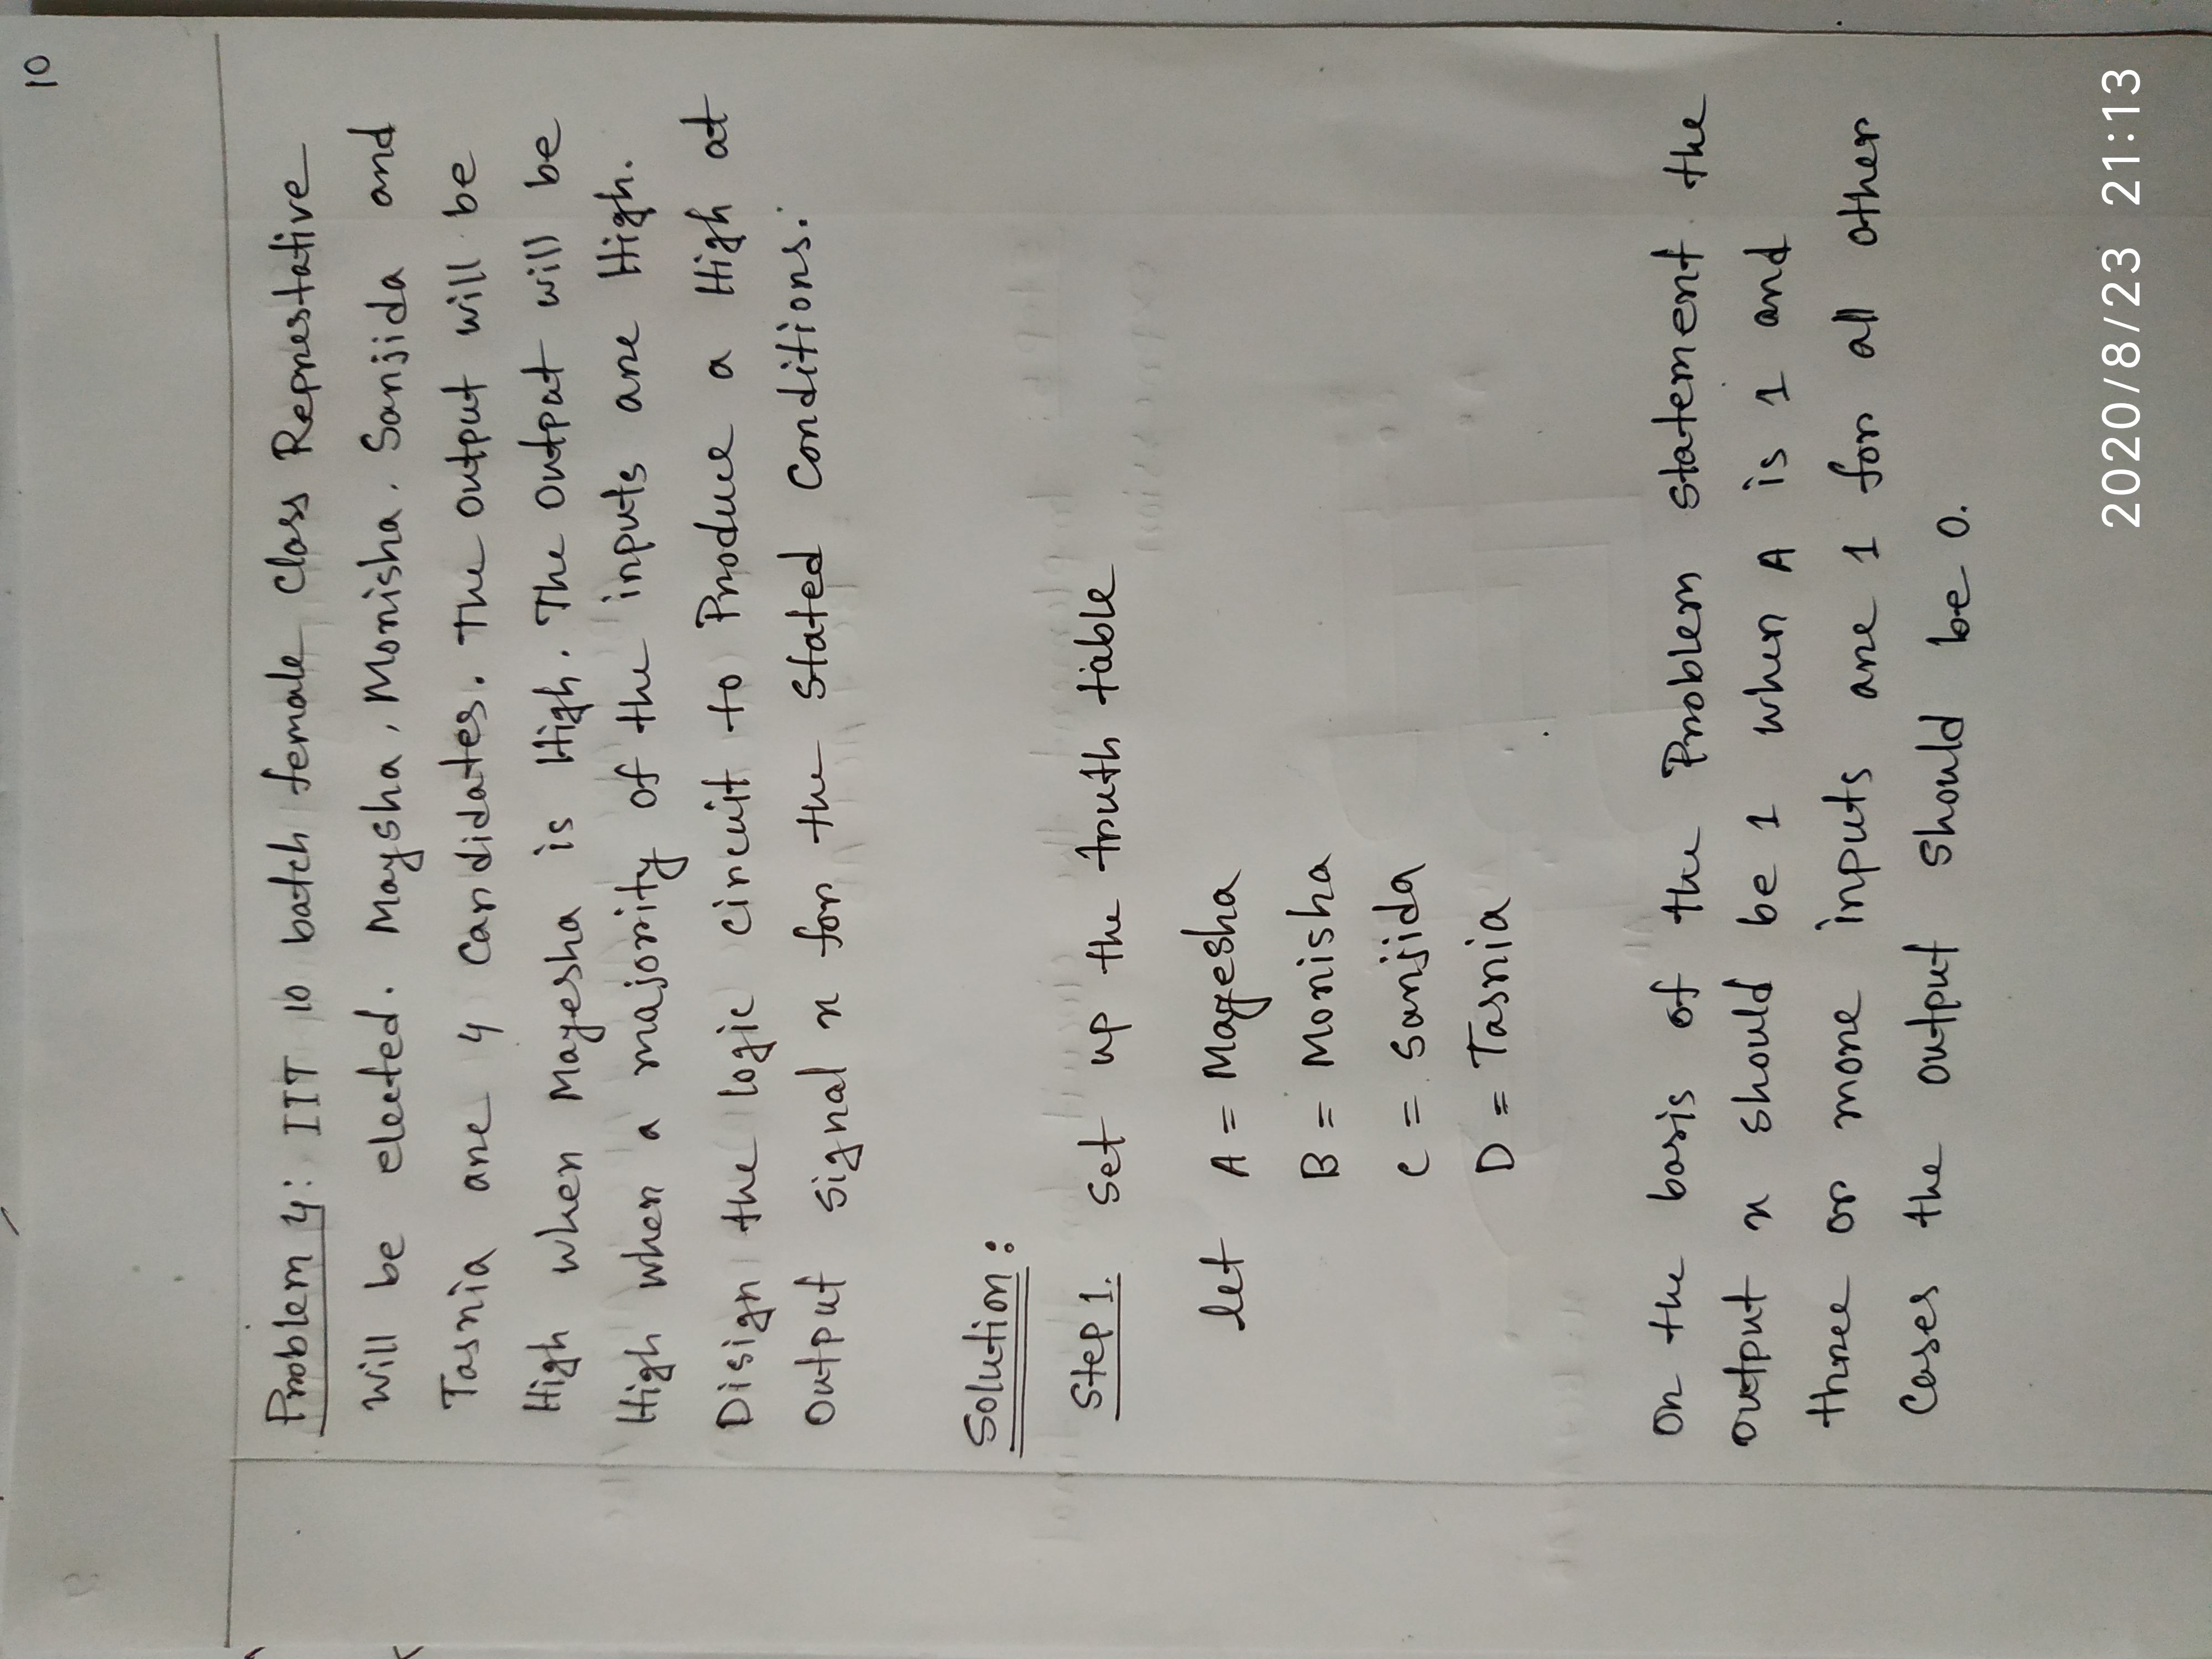 10
Problem 4: IIT 10 batch female Class Represtative
Will be elected. Maysha, Monisha. Sanjida and
Tasnia are 4 Candidates. The output will be
High when Mayesha is High. The Output will be
High when a majority of the inputs are High.
Disign the logic circuit to Produce a High at
Output signal x for the Stated Conditions.
Solution:
Step 1. Set up the truth table
let A = Mayesha
B = Monisha
C = Sanjida
D = Tasnia
On the basis of the Problem statement the
output x should be 1 when A is 1 and
three or more inputs are 1 for all other
Cases the output should be 0.
2020/8/23 21:13